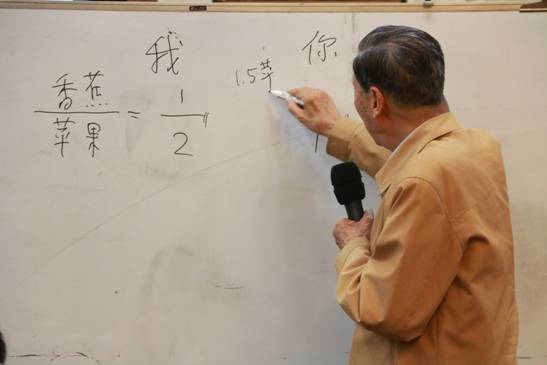 我
你
香蕉
苹果
=
1
2
1.5苹